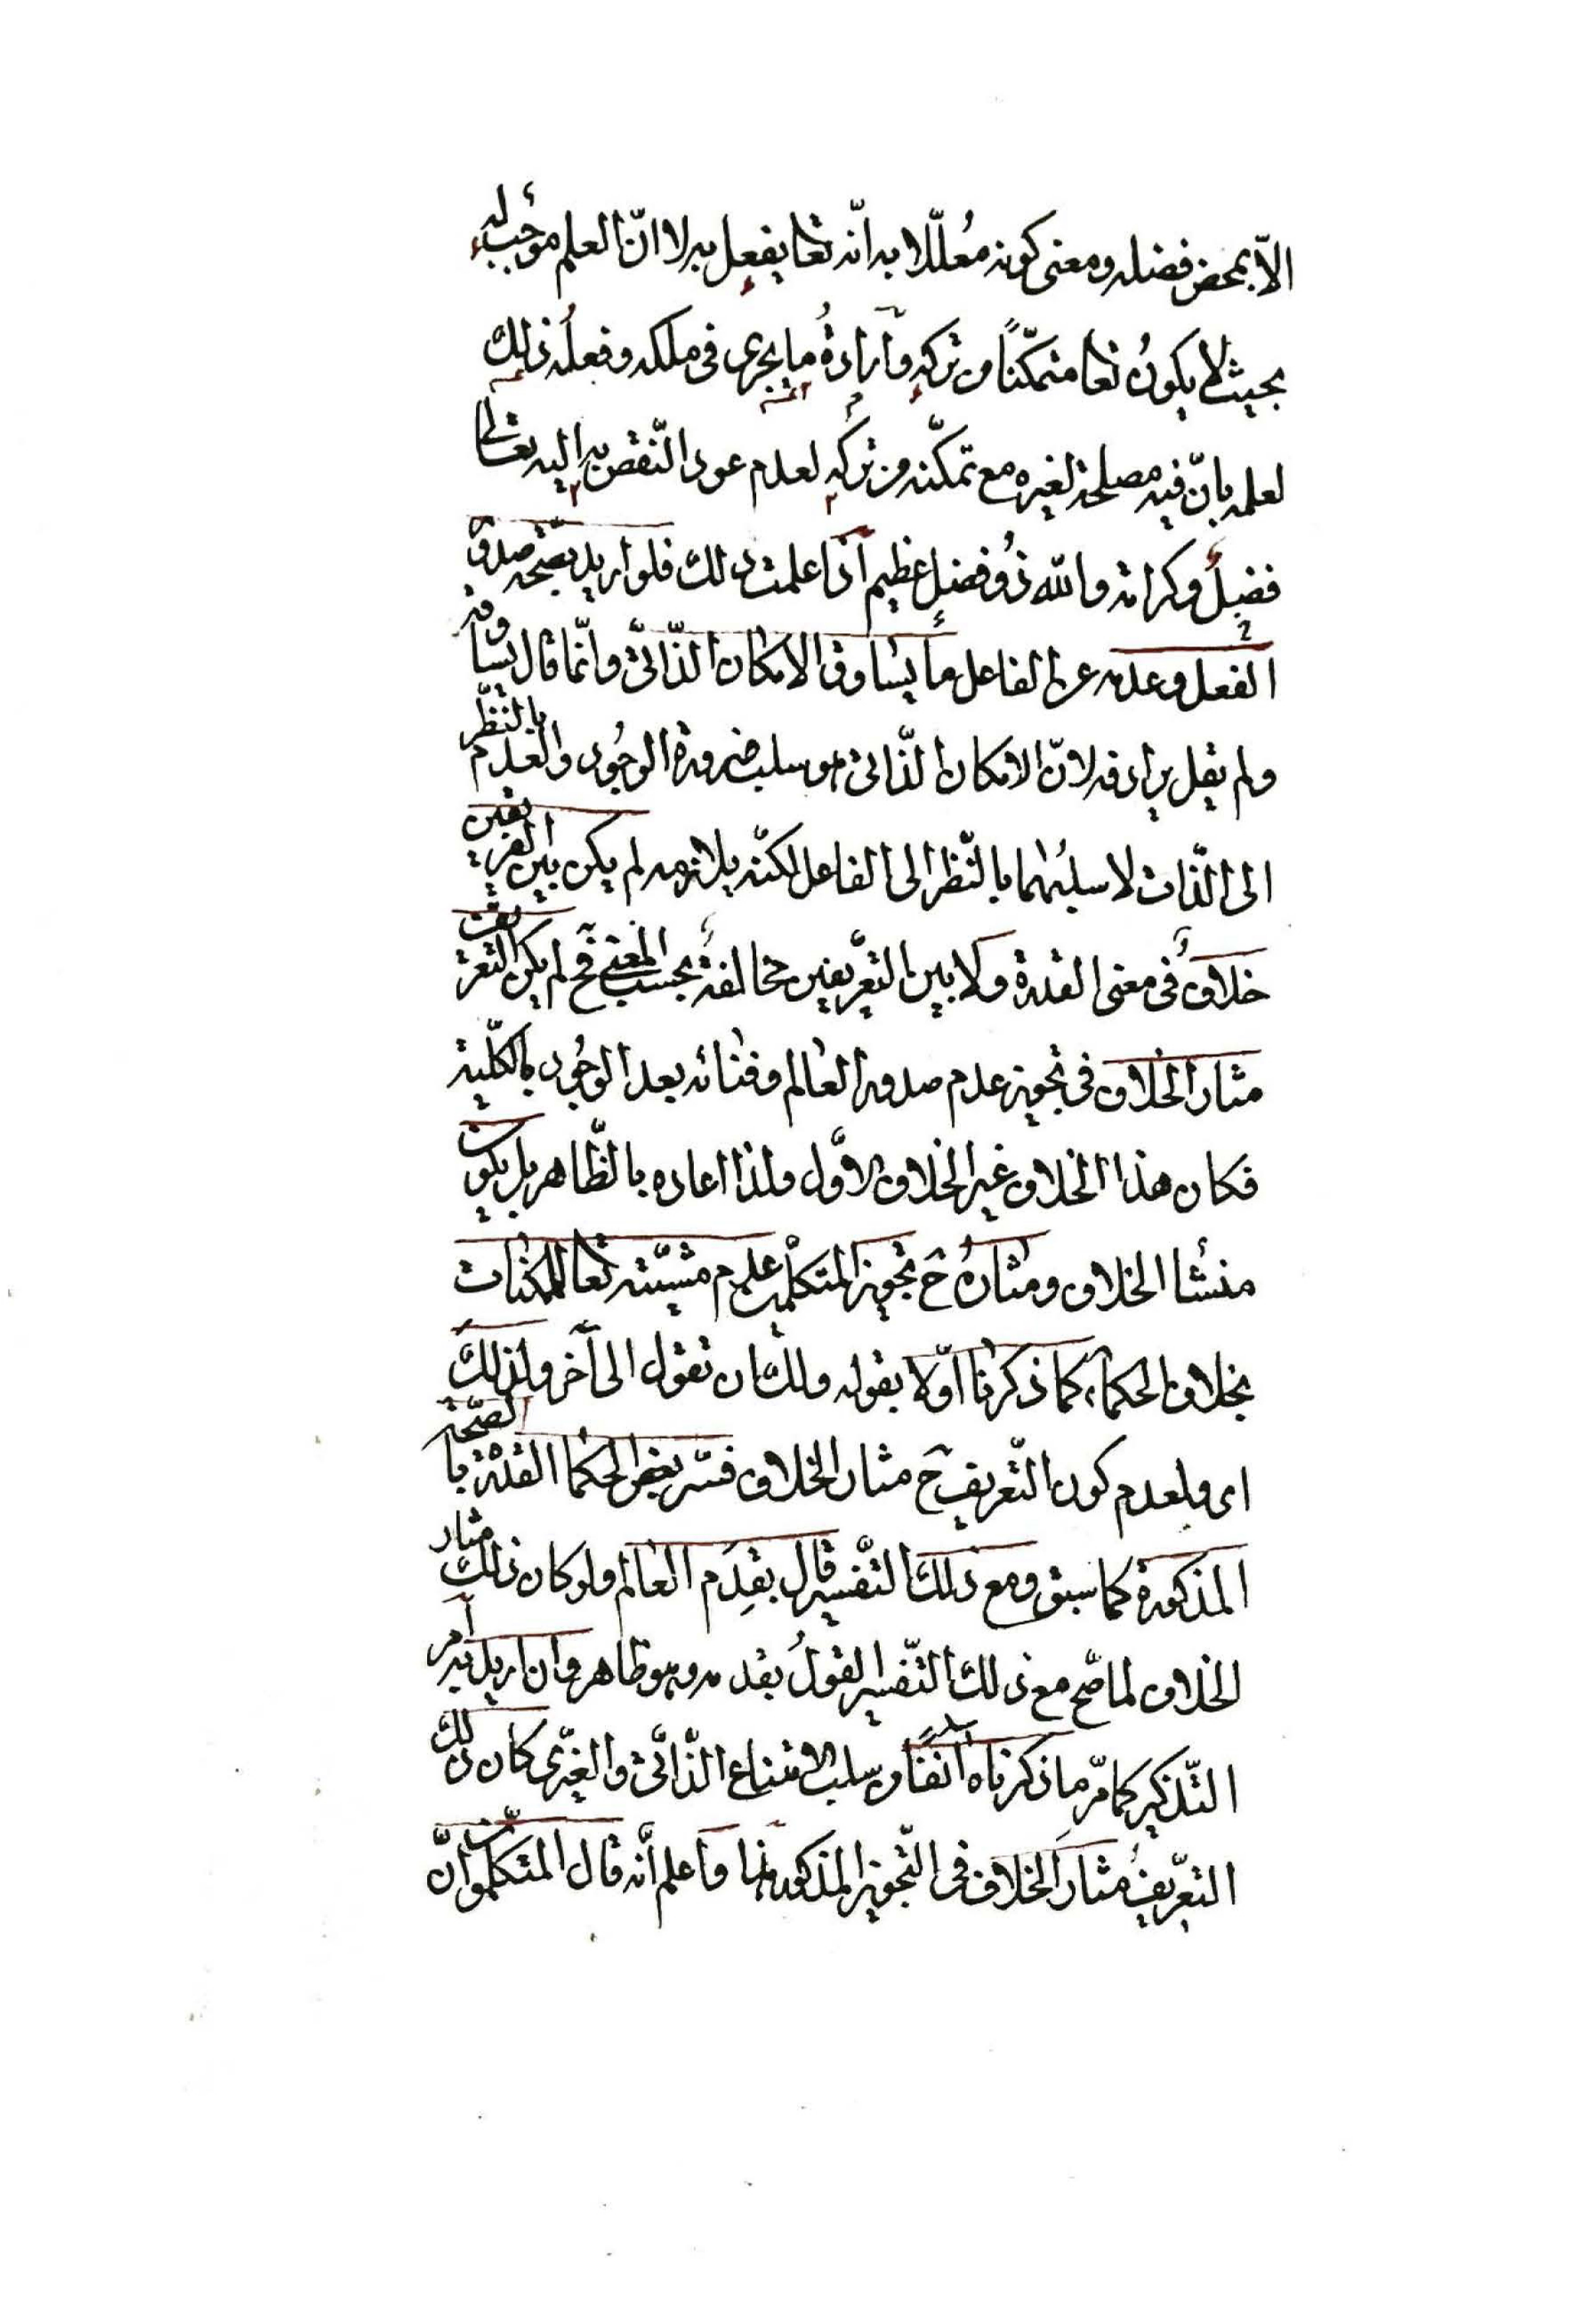 الاّ بمحض فضله ومعنى كونه مُعلّلا به انّه تعا يفعل به لا انّ العلم موُجب له
بحيث لا يكونُ تعا متمكّناً من تركه وآرادةُ ما يجرى فى ملكه وفعلُه ذلك
لعلمه بانّ فيه مصلحة لغيره مع تمكّنه من تركه لعدم عود النّقص به اليه تعالى
فضلٌ وكرامة والله ذُو فضلٍ عظيم اذا علمت ذلك فلو اريد بصّحة صدور
الفعل وعدمه عن الفاعل ما يساوق الامكان الذّاتىّ وانّما قال يساوقه
ولم يقل يرادفه لانّ الامكان الذّاتى هو سلب ضرورة الوجُود والعدم بالنّظر
الى الذّات لا سلبُهما بالنّظر الى الفاعل لكنّه يلازمه لم يكن بين الفريقين
خلافٌ فى معنى القدرة ولا بين التعّريفين مخالفةٌ بحسب المعنى فح لم يكن التعريف
مثار الخلاف فى تجويز عدم صدور العالم وفنائه بعد الوجُود بالكلّية
فكان هذا الخلاف غير الخلاف الاوّل ولذا اعاده بالظّاهر بل يكون
منشأ الخلاف ومثارهُ ح تجويز المتكلّمين عدم مشيّته تعا للمكنات
بخلاف الحكماء كما ذكرنا اوّلا بقوله ولك ان تقول الى آخر ولذلك
اى ولعدم كون التّعريف ح مثار الخلاف فسّر بعض الحكما القدرة بالصّحة
المذكورة كما سبق ومع ذلك التّفسير قال بقِدَم العالم ولو كان ذلك مثار
الخلاف لما صّح مع ذلك التّفسير القولُ بقدمه وهو ظاهر وان اريد به امر
التّذكير كما مّر ما ذكرناه آنفًا من سلب الامتناع الذّاتىّ والغيّرى كان ذلك
التعّريفُ مثار الخلاف فى التّجويز المذكور واعلم أنّه قال المتكلّمون انّ